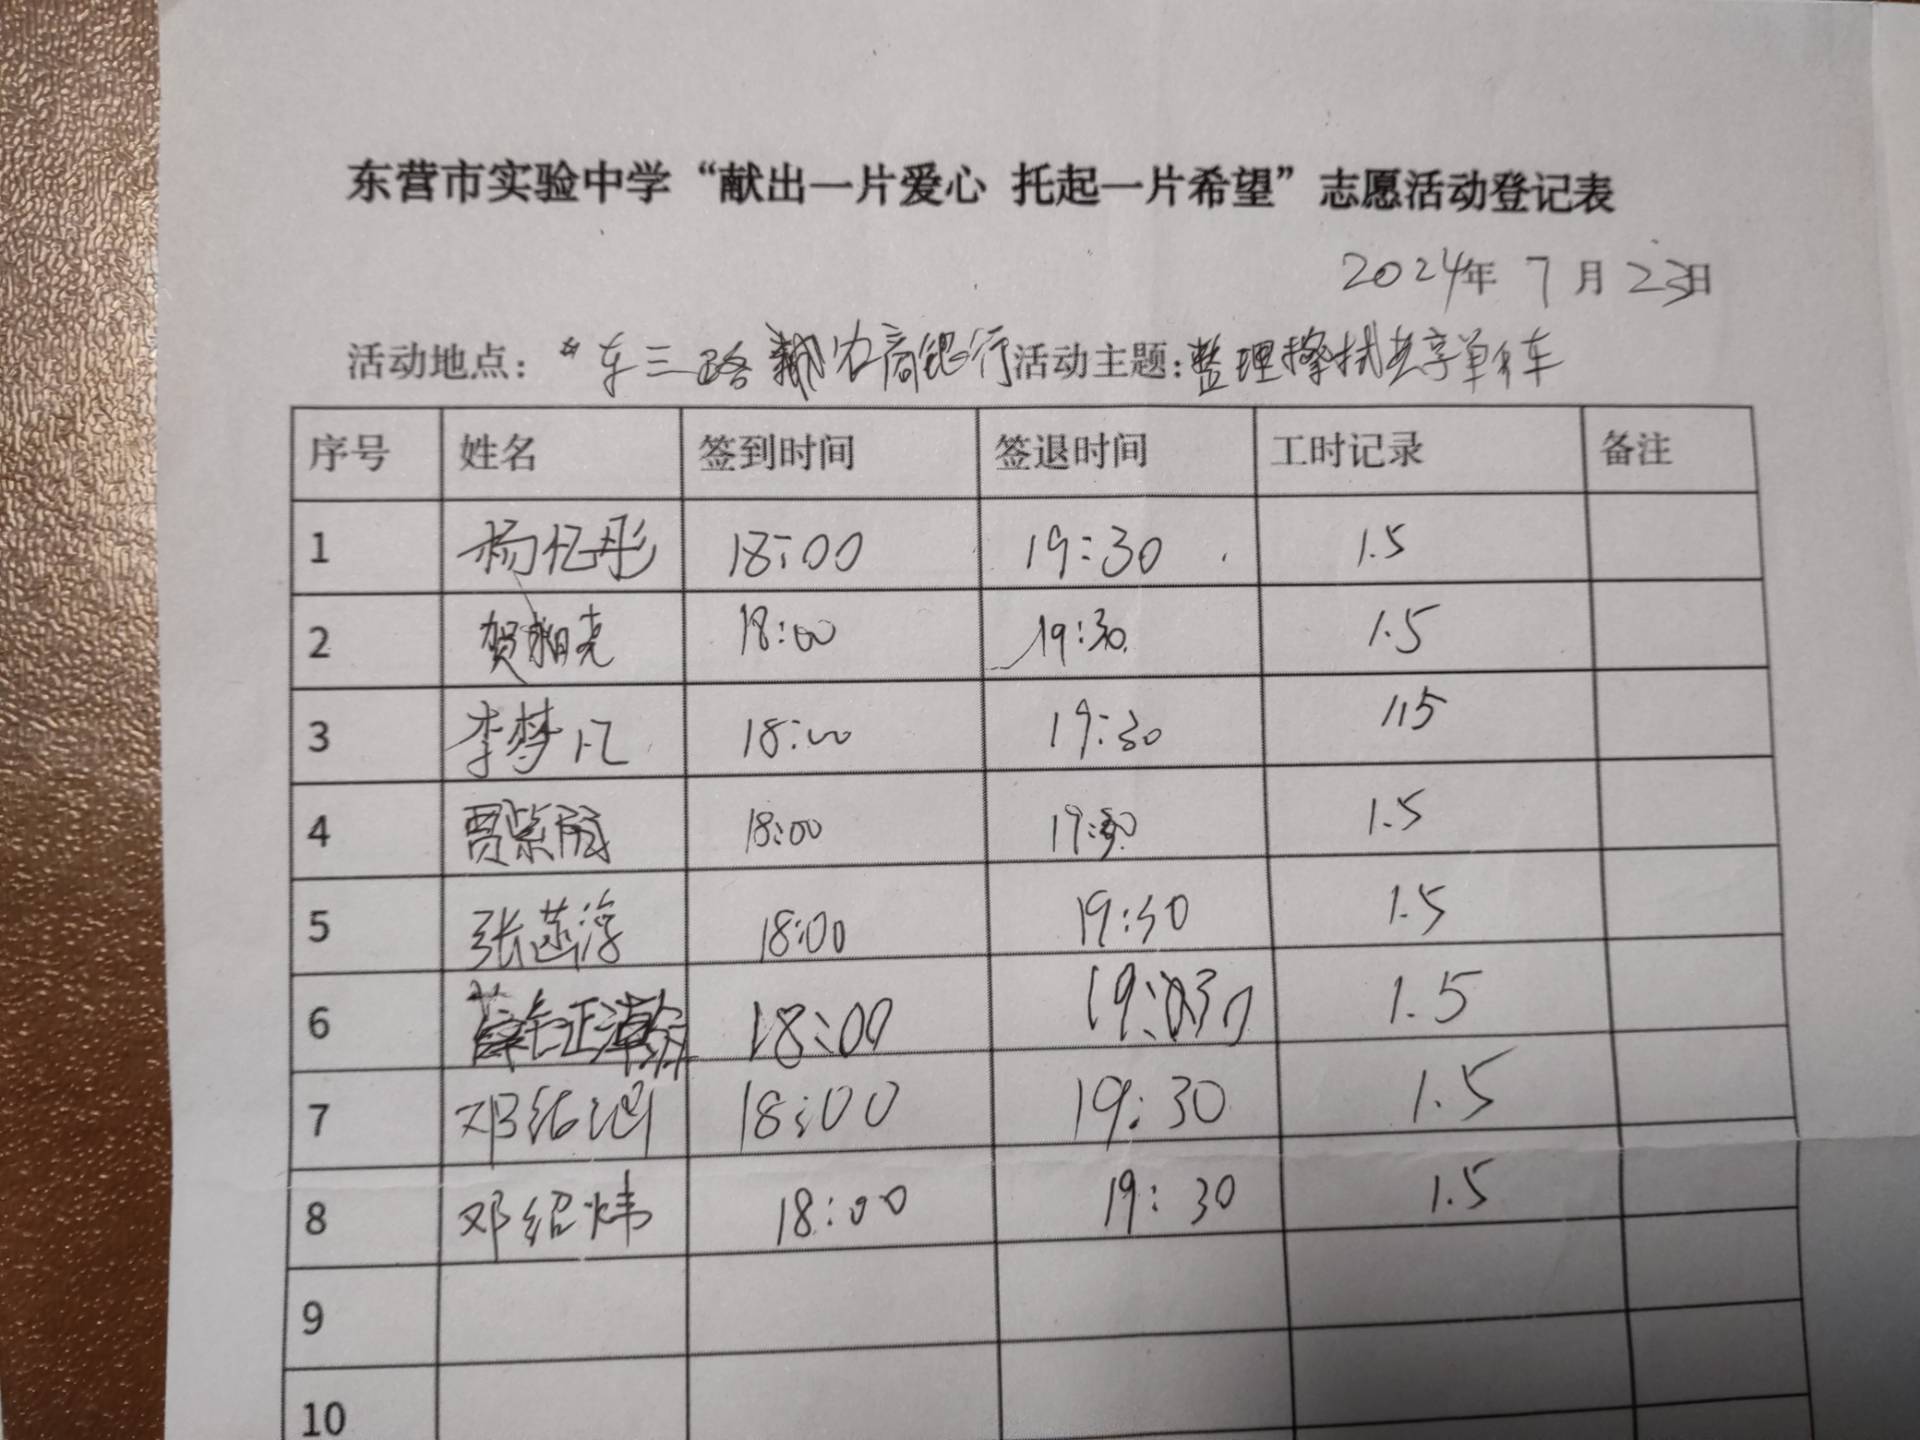 东营市实验中学“献出一片爱心 托起一片希望”志愿活动登记表
2024年 7月 23日
活动地点：东三路农商银行 活动主题：整理擦拭共享单车
序号 姓名 签到时间 签退时间 工时记录 备注
1 杨忆彤 18:00 19:30 1.5
2 贺翔尧 18:00 19:30 1.5
3 李梦凡 18:00 19:30 1.5
4 贾紫 18:00 19:30 1.5
5 张菡淳 18:00 19:30 1.5
6 18:00 19:30 1.5
7 邓绍 18:00 19:30 1.5
8 邓绍炜 18:00 19:30 1.5
9
10